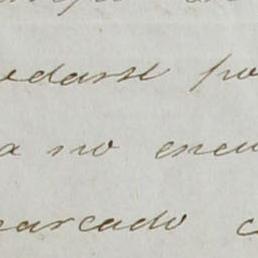 edarse po
a no encu
arcado c